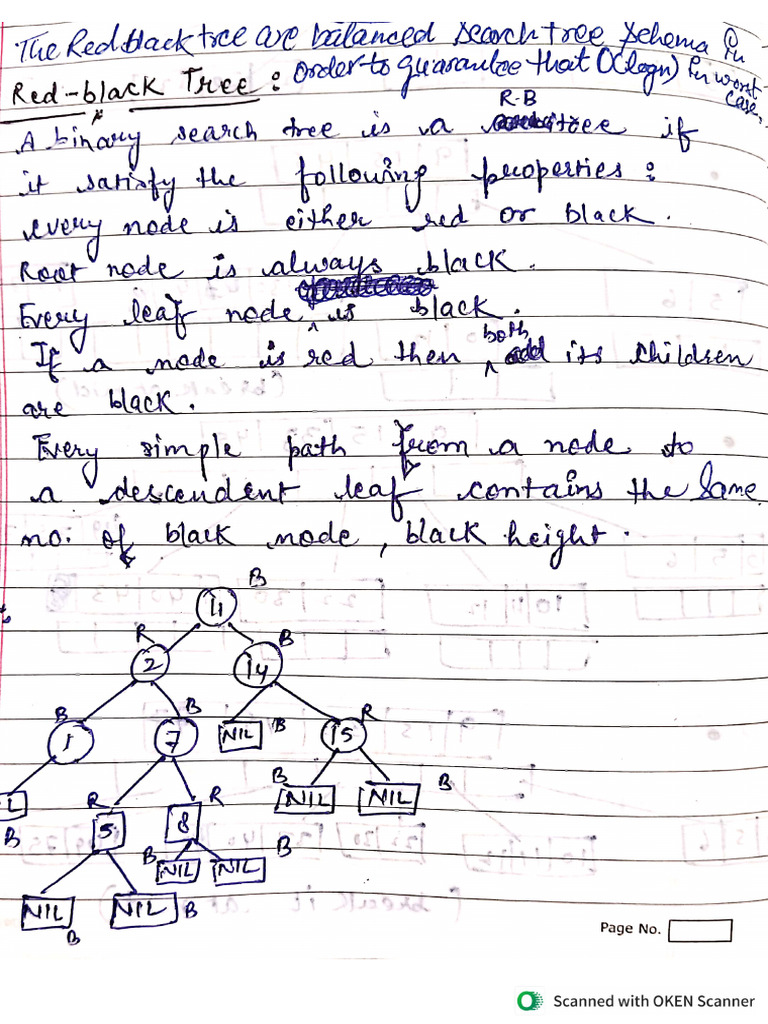 The Red black tree are balanced search tree schema in
Red-black Tree : order to guarantee that O(logn) in worst
case.
R-B
A binary search tree is a tree if
it satisfy the following properties :
every node is either red or black.
Root node is always black.
Every leaf node is black.
both
If a node is red then its children
are black.
Every simple path from a node to
a descendent leaf contains the same
no: of black node, black height.
B
11
R
B
2
14
B
B
R
1
7
NIL
B
15
R
R
B
B
L
5
8
NIL
NIL
B
B
B
NIL
NIL
NIL
NIL
B
B
Page No.
Scanned with OKEN Scanner